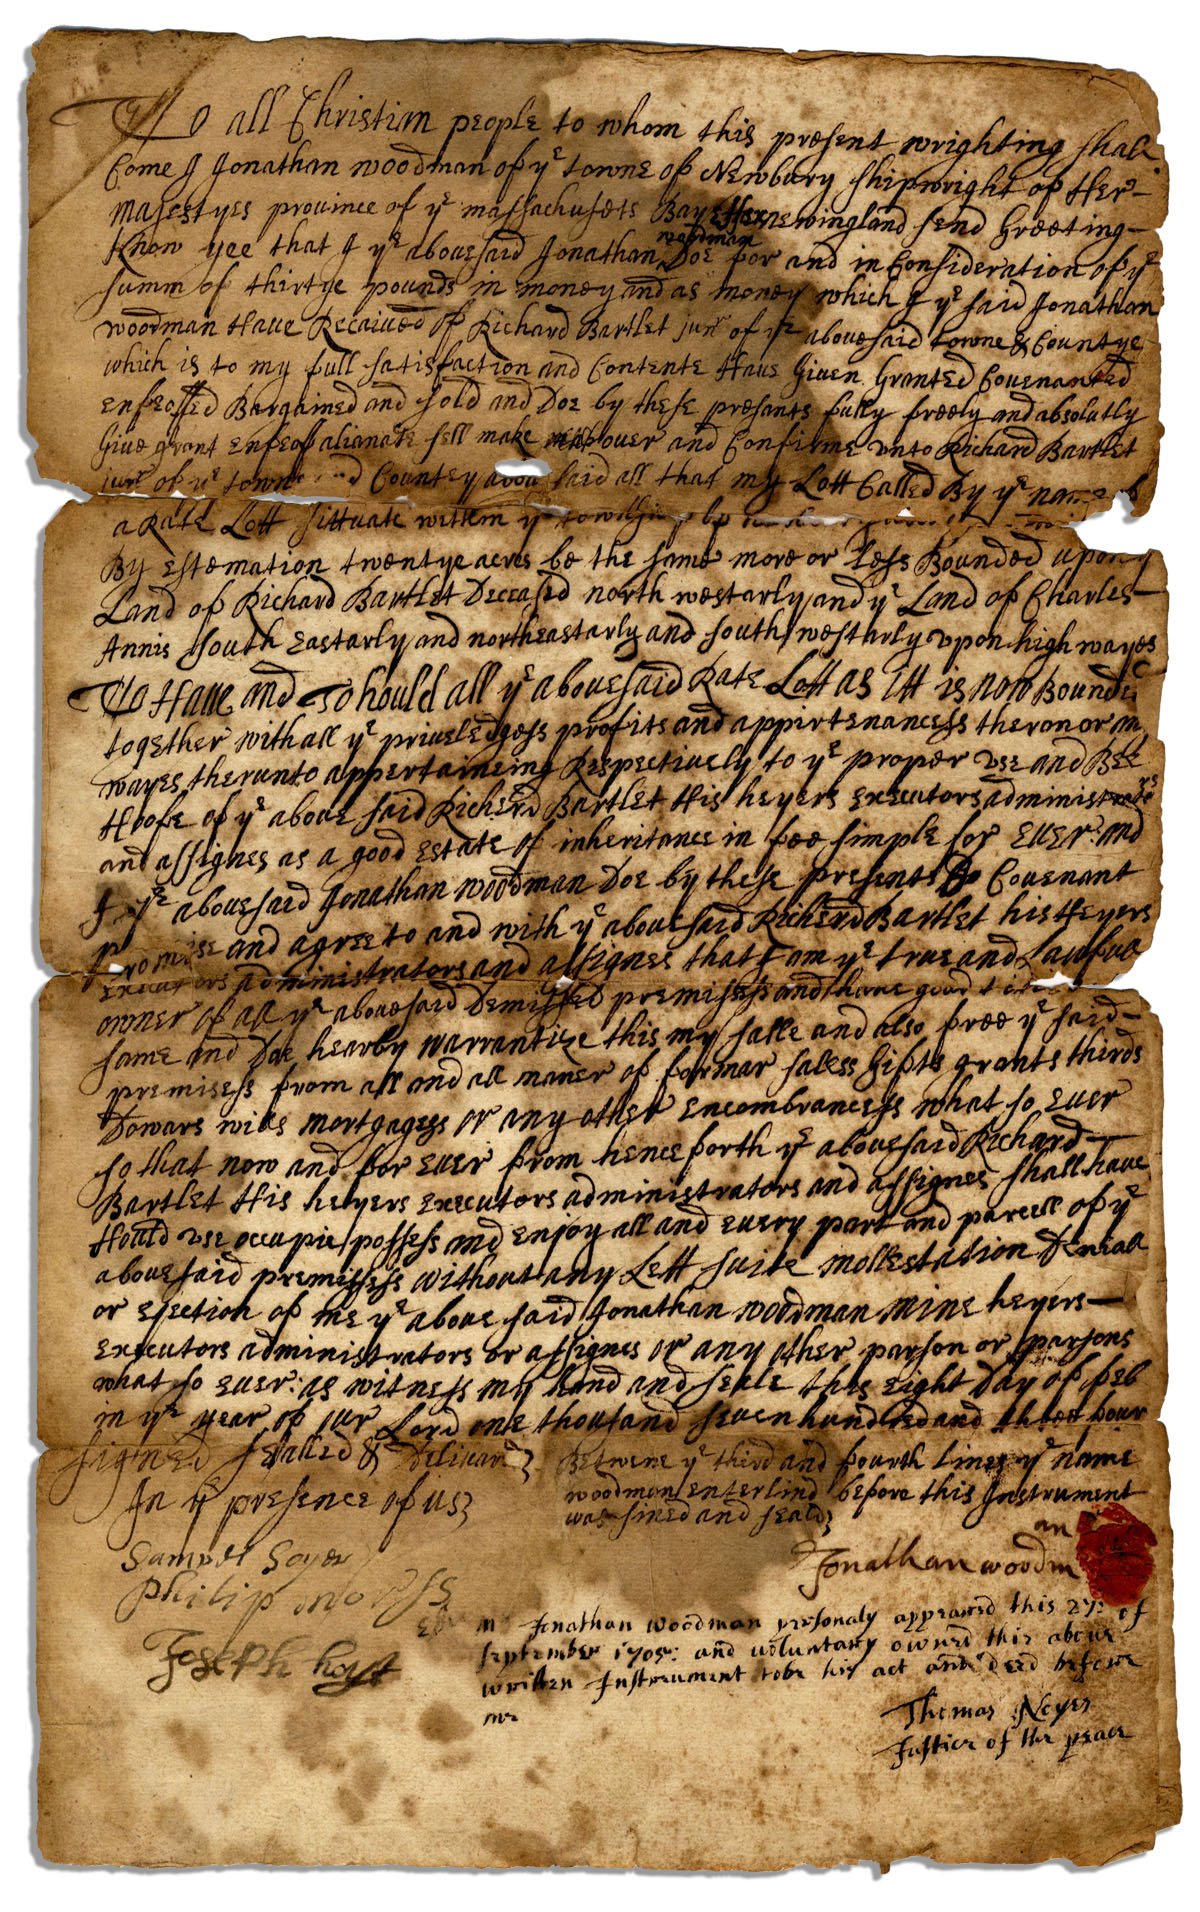 To all Christian people to whom this present wrighting shall
Come I Jonathan woodman of yᵉ towne of Newbury shipwright of Her-
majestyes prouince of yᵉ massachusets Bay newingland send Greeting-
Know yee that I yᵉ abouesaid Jonathan woodman Doe for and in Consideration of yᵉ
summ of thirtye pounds in money and as money which I yᵉ said Jonathan
woodman Haue Receiued of Richard Bartlet junʳ of yᵉ abouesaid towne & Countye
which is to my full satisfaction and Contente Haue Giuen Granted Couenanted
enfeoffed Bargained and sold and Doe by these presants fully freely and absolutly
Giue grant enfeoff alianate sell make over and Confirme vnto Richard Bartlet
junʳ of yᵉ town Countey aboue said all that my Lott Called By yᵉ name of
a Rate Lott sittuate within yᵉ
By estemation twentye acres be the same more or less Bounded upon yᵉ
Land of Richard Bartlet Deceased north westarly and yᵉ Land of Charles-
Annis south Eastarly and northeastarly and south westarly vpon high wayes
To Haue and To hould all yᵉ abouesaid Rate Lott as itt is now Bounded
together with all yᵉ priueledgess profits and appirtenancess theron or any
wayes therunto appertaineing Respectiuely to yᵉ proper vse and Bee
Hoofe of yᵉ aboue said Richerd Bartlet His heyers executors administrators
and assignes as a good estate of inheritance in fee simple for euer: and
I yᵉ abouesaid Jonathan woodman Doe by these presents Do Couenant
promise and agree to and with yᵉ abouesaid Richerd Bartlet his Heyers
executors administrators and assignes that I am yᵉ true and Lawfull
owner of all yᵉ abouesaid Demissed premisess and haue good
same and Doe hearby warrantize this my salle and also free yᵉ said-
premisess from all and all maner of formar saless Gifts grants thirds
Dowars wills mortgagess or any other encombrancess what so euer
so that now and for euer from henceforth yᵉ abouesaid Richard-
Bartlet His heyers executors administrators and assignes shall haue
Hould vse occupie possess and enjoy all and euery part and parcell of yᵉ
abouesaid premisess without any Lett suite mollestation Deniall
or ejection of me yᵉ aboue said Jonathan woodman mine heyers-
executors administrators or assignes or any other parson or parsons
what so euer: as witness my hand and seale this eight Day of feb
in yᵉ year of our Lord one thousand seuen hundred and three four
signed sealled & Deliuard
In yᵉ presence of us
Betwene yᵉ third and fourth lines yᵉ name
woodman enterlind before this Instrument
was sined and seald
Samuel Sayer
Philip
Joseph hoyt
Jonathan woodman
Jonathan Woodman presonaly appeared this 27: of
september 1705: and voluntary owned this aboue
written Instrument to be his act and deed before
me
Thomas Noyes
Justice of the peace